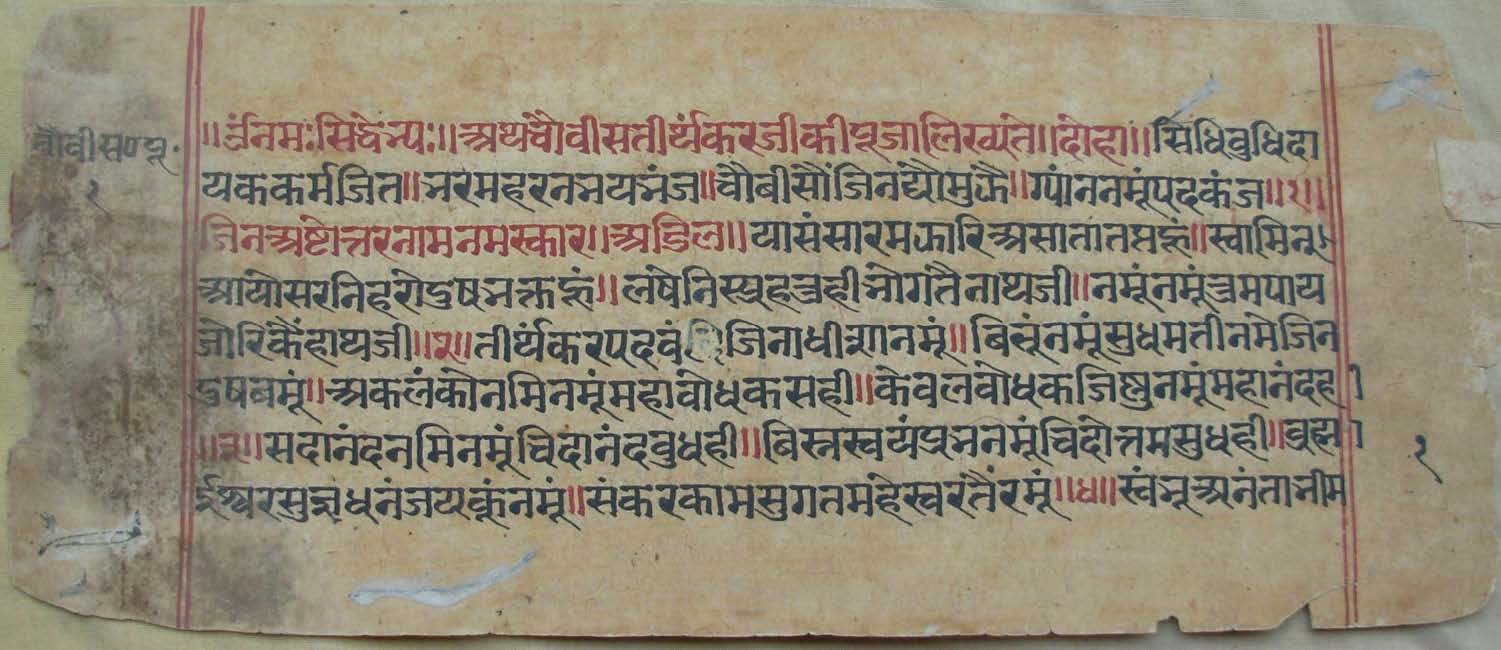 चौबीस०पू०
१
॥ॐनमःसिद्धेभ्यः॥अथचौवीसतीर्थंकरजीकीपूजालिख्यते॥दोहा॥सिधिबुधिदा
यककर्मजित॥भरमहरनभयभंज॥चौबीसौंजिनद्यौमुझै॥ग्यांननमूंपदकंज॥१॥
जिनअष्टोत्तरनामनमस्कार॥अडिल॥यासंसारमझारिअसातातप्तहूं॥स्वामिनू
आयोसरनिहरोदुषभक्तहूं॥लषेनिस्पृहउहीभोगतैनाथजी॥नमूंनमूंउमपाय
जोरिकैंहाथजी॥२॥तीर्थंकरपदवंजिनाधीशनमूं॥बिसूंनमूंसुधमतीनमेजिन
दुषबमूं॥अकलंकौनमिनमूंमहावोधकसही॥केवलवोधकजिष्णुनमूंमहानंदह
॥३॥सदानंदनमिनमूंचिदानंदवुधही॥बिस्नस्वयंप्रभनमूंचिदोत्तमसुधही॥ब्रह्म
ईश्वरसुनधनंजयकूंनमूं॥संकरकामसुगतमहेस्वरतैंरमूं॥४॥स्वंभूअनंताभीम
१